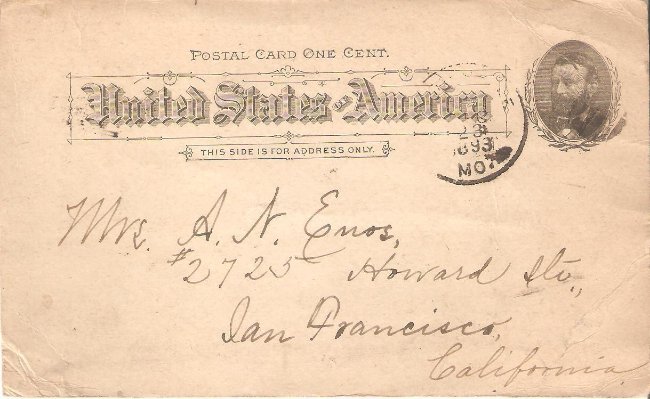 POSTAL CARD ONE CENT.
United States of America
THIS SIDE IS FOR ADDRESS ONLY.
28
1893
MO.
Mrs. A. N. Enos,
#2725 Howard Str.,
San Francisco,
California